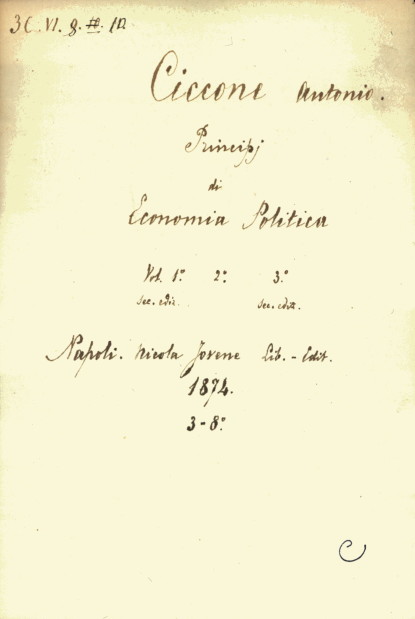 3C. VI. 8.
Ciccone Antonio.
Principj
di
Economia Politica
Vol. 1º 2º 3º
sec. ediz. sec. ediz.
Napoli. Nicola Jovene Lib. - Edit.
1874.
3-8º
C